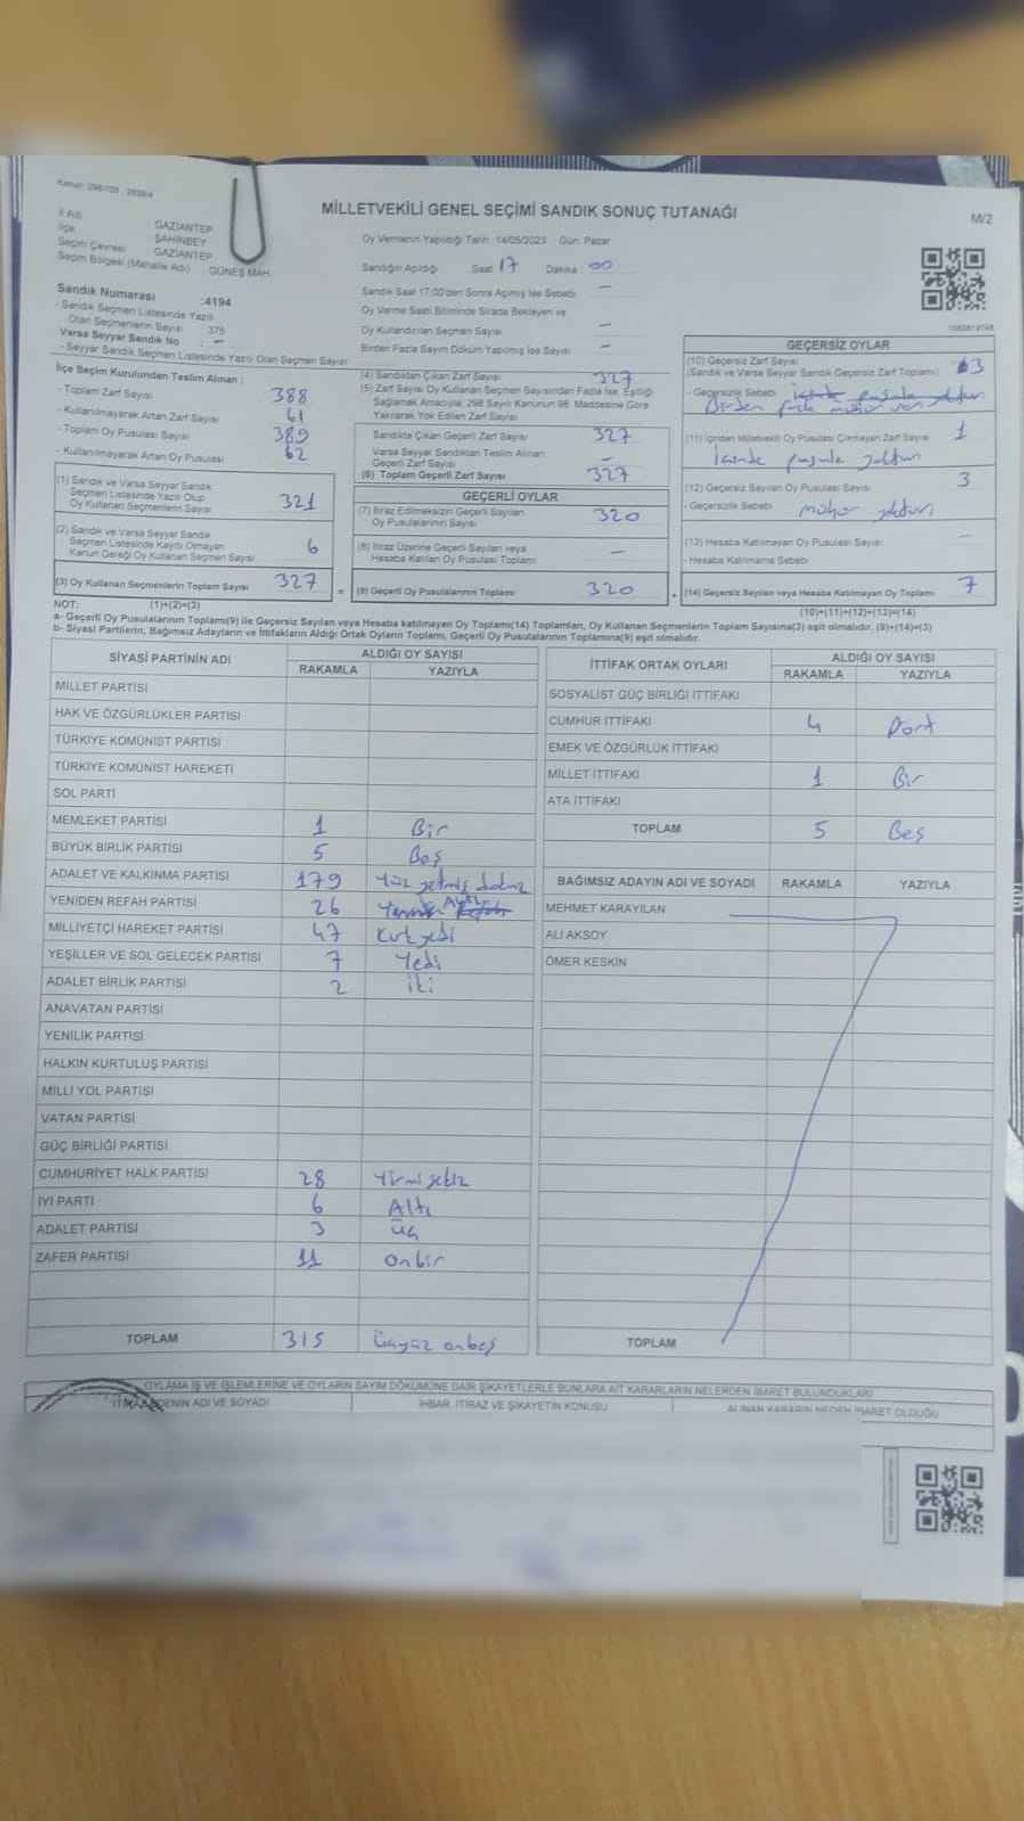 MİLLETVEKİLİ GENEL SEÇİMİ SANDIK SONUÇ TUTANAĞI
M/2
İl Adı GAZİANTEP
İlçe ŞAHİNBEY
Seçim Çevresi GAZİANTEP
Seçim Bölgesi (Mahalle Adı) : GÜNEŞ MAH.
Sandık Numarası :4194
- Sandık Seçmen Listesinde Yazılı
Olan Seçmenlerin Sayısı 375
Varsa Seyyar Sandık No : -
- Seyyar Sandık Seçmen Listesinde Yazılı Olan Seçmen Sayısı
Oy Vermenin Yapıldığı Tarih : 14/05/2023 Gün: Pazar
Sandığın Açıldığı Saat 17 Dakika 00
Sandık Saat 17:00'den Sonra Açılmış İse Sebebi -
Oy Verme Saati Bitiminde Sırada Bekleyen ve
Oy Kullandırılan Seçmen Sayısı -
Birden Fazla Sayım Döküm Yapılmış İse Sayısı -
İlçe Seçim Kurulundan Teslim Alınan :
- Toplam Zarf Sayısı 388
- Kullanılmayarak Artan Zarf Sayısı 61
- Toplam Oy Pusulası Sayısı 389
- Kullanılmayarak Artan Oy Pusulası 62
(1) Sandık ve Varsa Seyyar Sandık
Seçmen Listesinde Yazılı Olup
Oy Kullanan Seçmenlerin Sayısı 321
(2) Sandık ve Varsa Seyyar Sandık
Seçmen Listesinde Kayıtlı Olmayan
Kanun Gereği Oy Kullanan Seçmen Sayısı 6
(3) Oy Kullanan Seçmenlerin Toplam Sayısı 327
(4) Sandıktan Çıkan Zarf Sayısı 327
(5) Zarf Sayısı Oy Kullanan Seçmen Sayısından Fazla İse, Eşitliği
Sağlamak Amacıyla, 298 Sayılı Kanunun 98. Maddesine Göre
Yakılarak Yok Edilen Zarf Sayısı
Sandıkta Çıkan Geçerli Zarf Sayısı 327
Varsa Seyyar Sandıktan Teslim Alınan
Geçerli Zarf Sayısı -
(6) Toplam Geçerli Zarf Sayısı 327
GEÇERLİ OYLAR
(7) İtiraz Edilmeksizin Geçerli Sayılan
Oy Pusulalarının Sayısı 320
(8) İtiraz Üzerine Geçerli Sayılan veya
Hesaba Katılan Oy Pusulası Toplamı -
= (9) Geçerli Oy Pusulalarının Toplamı 320
GEÇERSİZ OYLAR
(10) Geçersiz Zarf Sayısı
(Sandık ve Varsa Seyyar Sandık Geçersiz Zarf Toplamı) 3
- Geçersizlik Sebebi Birden fazla mühür var
(11) İçinden Milletvekili Oy Pusulası Çıkmayan Zarf Sayısı 1
İçinde pusula yoktur
(12) Geçersiz Sayılan Oy Pusulası Sayısı 3
- Geçersizlik Sebebi mühür yoktur
(13) Hesaba Katılmayan Oy Pusulası Sayısı -
- Hesaba Katılmama Sebebi
+ (14) Geçersiz Sayılan veya Hesaba Katılmayan Oy Toplamı 7
NOT: (1)+(2)=(3) (10)+(11)+(12)+(13)=(14)
a- Geçerli Oy Pusulalarının Toplamı(9) ile Geçersiz Sayılan veya Hesaba katılmayan Oy Toplamı(14) Toplamları, Oy Kullanan Seçmenlerin Toplam Sayısına(3) eşit olmalıdır. (9)+(14)=(3)
b- Siyasi Partilerin, Bağımsız Adayların ve İttifakların Aldığı Ortak Oyların Toplamı, Geçerli Oy Pusulalarının Toplamına(9) eşit olmalıdır.
SİYASİ PARTİNİN ADI ALDIĞI OY SAYISI
RAKAMLA YAZIYLA
MİLLET PARTİSİ
HAK VE ÖZGÜRLÜKLER PARTİSİ
TÜRKİYE KOMÜNİST PARTİSİ
TÜRKİYE KOMÜNİST HAREKETİ
SOL PARTİ
MEMLEKET PARTİSİ 1 Bir
BÜYÜK BİRLİK PARTİSİ 5 Beş
ADALET VE KALKINMA PARTİSİ 179 Yüz yetmiş dokuz
YENİDEN REFAH PARTİSİ 26 Yirmi Altı
MİLLİYETÇİ HAREKET PARTİSİ 47 Kırk yedi
YEŞİLLER VE SOL GELECEK PARTİSİ 7 Yedi
ADALET BİRLİK PARTİSİ 2 İki
ANAVATAN PARTİSİ
YENİLİK PARTİSİ
HALKIN KURTULUŞ PARTİSİ
MİLLİ YOL PARTİSİ
VATAN PARTİSİ
GÜÇ BİRLİĞİ PARTİSİ
CUMHURİYET HALK PARTİSİ 28 Yirmi sekiz
İYİ PARTİ 6 Altı
ADALET PARTİSİ 3 Üç
ZAFER PARTİSİ 11 Onbir
TOPLAM 315 Üçyüz onbeş
İTTİFAK ORTAK OYLARI ALDIĞI OY SAYISI
RAKAMLA YAZIYLA
SOSYALİST GÜÇ BİRLİĞİ İTTİFAKI
CUMHUR İTTİFAKI 4 Dört
EMEK VE ÖZGÜRLÜK İTTİFAKI
MİLLET İTTİFAKI 1 Bir
ATA İTTİFAKI
TOPLAM 5 Beş
BAĞIMSIZ ADAYIN ADI VE SOYADI RAKAMLA YAZIYLA
MEHMET KARAYILAN
ALİ AKSOY
ÖMER KESKİN
TOPLAM
OYLAMA İŞ VE İŞLEMLERİNE VE OYLARIN SAYIM DÖKÜMÜNE DAİR ŞİKAYETLERLE BUNLARA AİT KARARLARIN NELERDEN İBARET BULUNDUKLARI
ADI VE SOYADI İHBAR, İTİRAZ VE ŞİKAYETİN KONUSU ALINAN KARARIN NEDEN İBARET OLDUĞU